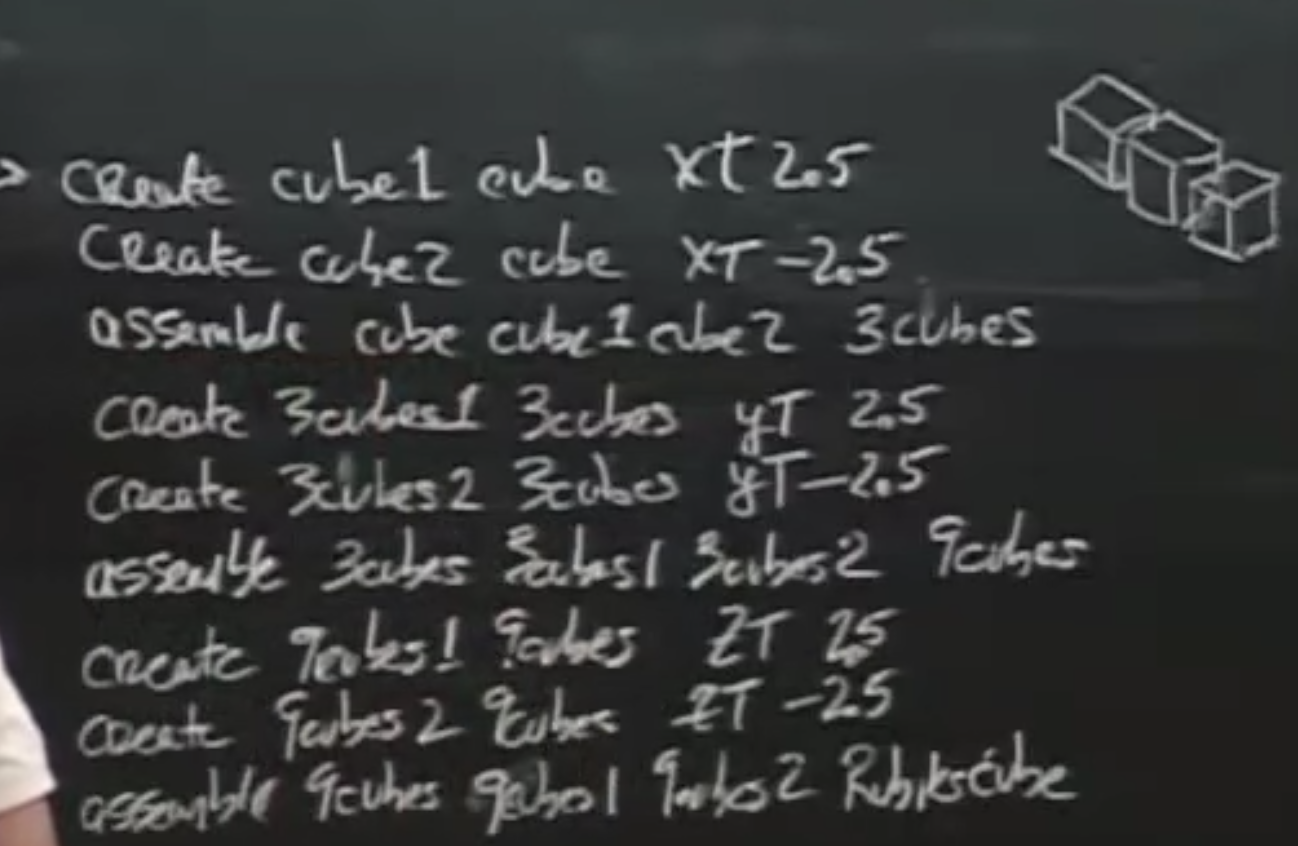 > create cube1 cube XT 2.5
Create cube2 cube XT -2.5
assemble cube cube1 cube2 3cubes
create 3cubes1 3cubes yT 2.5
create 3cubes2 3cubes yT -2.5
assemble 3cubes 3cubes1 3cubes2 9cubes
create 9cubes1 9cubes ZT 2.5
create 9cubes2 9cubes ZT -2.5
assemble 9cubes 9cubes1 9cubes2 Rubikscube